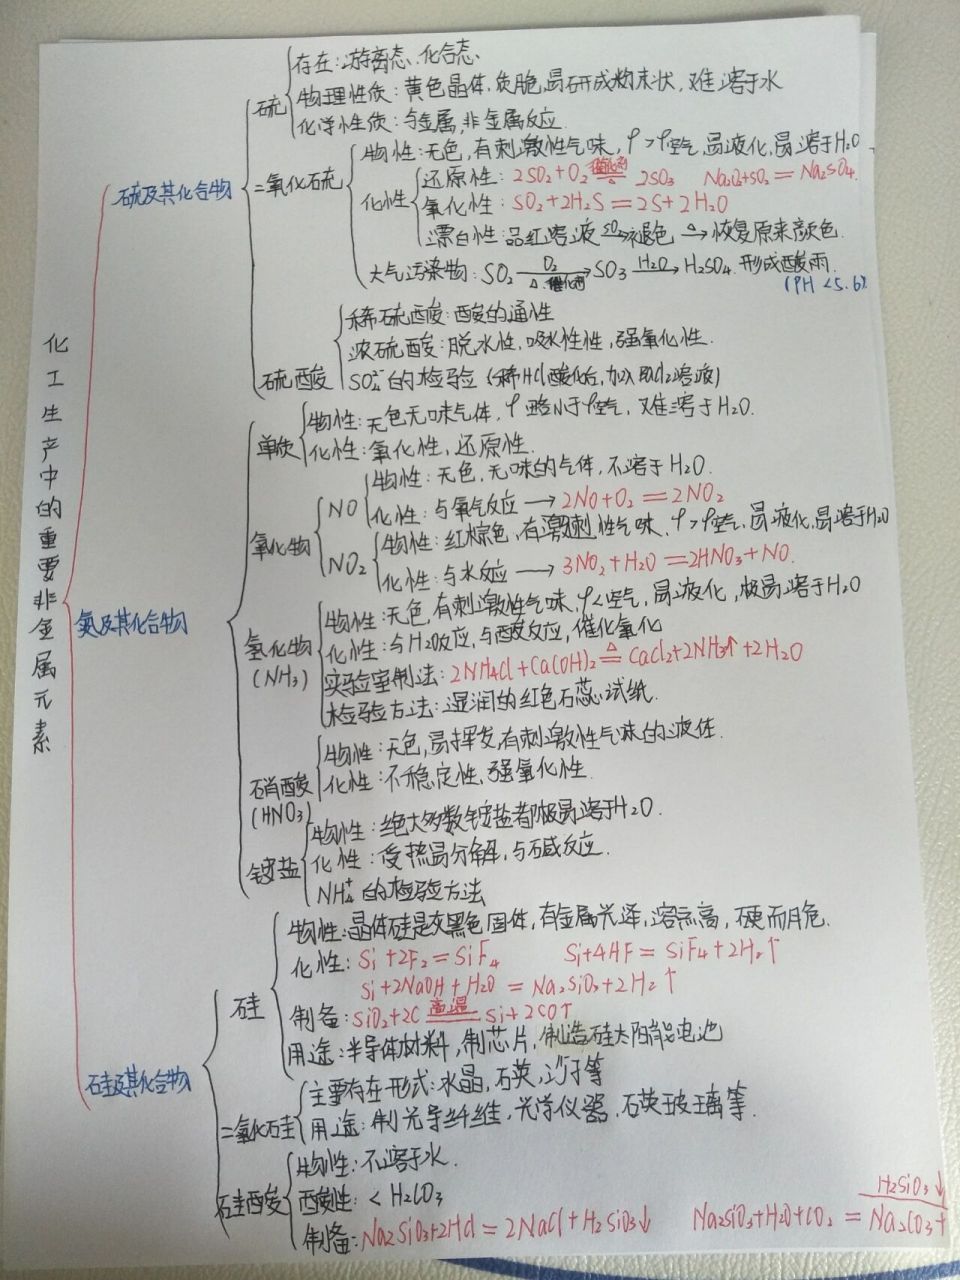 化工生产中的重要非金属元素
硫及其化合物
硫
存在:游离态、化合态
物理性质:黄色晶体,质脆,易研成粉末状,难溶于水
化学性质:与金属,非金属反应
二氧化硫
物性:无色,有刺激性气味,ρ>ρ空气,易液化,易溶于H₂O
化性
还原性:2SO₂+O₂ 催化剂⇌△ 2SO₃ Na₂O₂+SO₂=Na₂SO₄
氧化性:SO₂+2H₂S=2S+2H₂O
漂白性:品红溶液 SO₂→ 褪色 △→ 恢复原来颜色
大气污染物:SO₂ O₂→△.催化剂 SO₃ H₂O→ H₂SO₄.形成酸雨
(PH<5.6)
硫酸
稀硫酸:酸的通性
浓硫酸:脱水性,吸水性性,强氧化性.
SO₄²⁻的检验(稀HCl酸化后,加入BaCl₂溶液)
氮及其化合物
单质
物性:无色无味气体,ρ略小于ρ空气,难溶于H₂O.
化性:氧化性,还原性.
氧化物
NO
物性:无色,无味的气体,不溶于H₂O.
化性:与氧气反应→2NO+O₂=2NO₂
NO₂
物性:红棕色,有激刺性气味,ρ>ρ空气,易液化,易溶于H₂O
化性:与水反应→3NO₂+H₂O=2HNO₃+NO.
氢化物
(NH₃)
物性:无色,有刺激性气味,ρ<空气,易液化,极易溶于H₂O
化性:与H₂O反应,与酸反应,催化氧化
实验室制法:2NH₄Cl+Ca(OH)₂ △= CaCl₂+2NH₃↑+2H₂O
检验方法:湿润的红色石蕊试纸.
硝酸
(HNO₃)
物性:无色,易挥发,有刺激性气味的液体.
化性:不稳定性,强氧化性.
铵盐
物性:绝大多数铵盐都极易溶于H₂O.
化性:受热易分解,与碱反应.
NH₄⁺的检验方法
硅及其化合物
硅
物性:晶体硅是灰黑色固体,有金属光泽,溶点高,硬而脆.
化性:Si+2F₂=SiF₄ Si+4HF=SiF₄+2H₂↑
Si+2NaOH+H₂O=Na₂SiO₃+2H₂↑
制备:SiO₂+2C 高温= Si+2CO↑
用途:半导体材料,制芯片,制造硅太阳能电池
二氧化硅
主要存在形式:水晶,石英,沙子等
用途:制光导纤维,光学仪器,石英玻璃等.
硅酸
物性:不溶于水.
酸性:<H₂CO₃
制备:Na₂SiO₃+2HCl=2NaCl+H₂SiO₃↓ Na₂SiO₃+H₂O+CO₂=Na₂CO₃+
H₂SiO₃↓